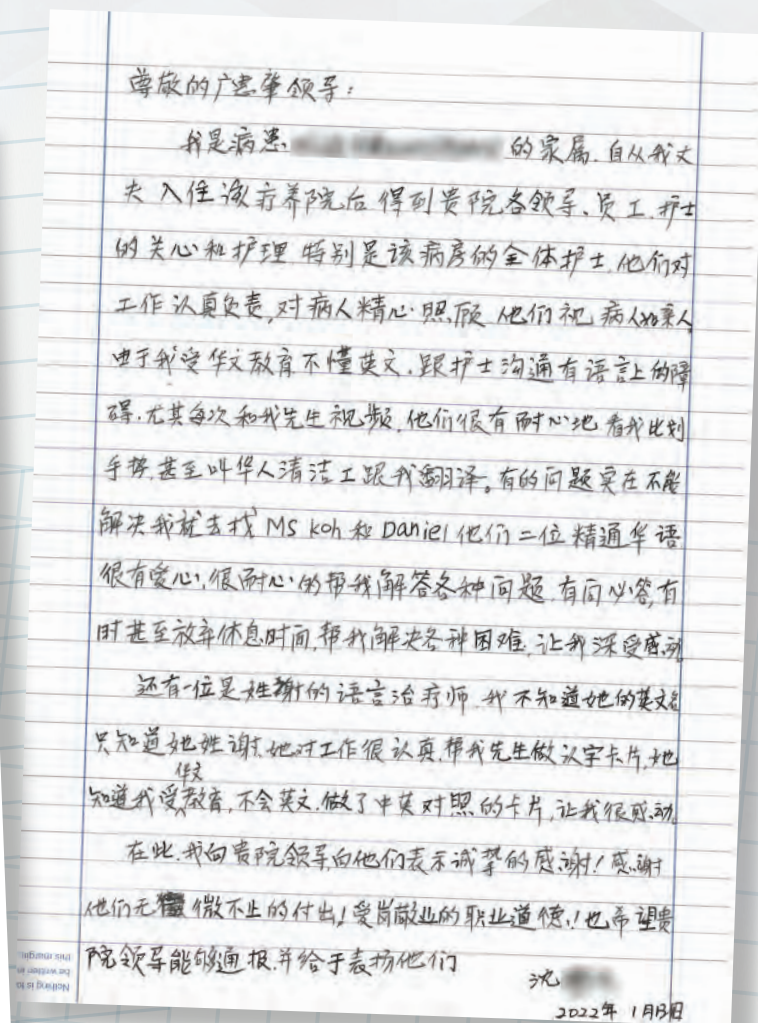 尊敬的广惠肇领导：
我是病患 的家属.自从我丈
夫入住该疗养院后得到贵院各领导、员工、护士
的关心和护理 特别是该病房的全体护士,他们对
工作认真负责,对病人精心照顾 他们视病人如亲人
由于我受华文教育不懂英文.跟护士沟通有语言上的障
碍.尤其每次和我先生视频,他们很有耐心地看我比划
手势,甚至叫华人清洁工跟我翻译。有的问题实在不能
解决我就去找 Ms Koh 和 Daniel 他们二位精通华语
很有爱心,很耐心的帮我解答各种问题.有问必答,有
时甚至放弃休息时间,帮我解决各种困难,让我深受感动
还有一位是姓谢的语言治疗师.我不知道她的英文名
只知道她姓谢.她对工作很认真,帮我先生做认字卡片,她
知道我受华文教育,不会英文.做了中英对照的卡片,让我很感动.
在此,我向贵院领导,向他们表示诚挚的感谢！感谢
他们无微不止的付出！爱岗敬业的职业道德！也希望贵
院领导能够通报.并给于表扬他们
沈
2022年 1月13日
Nothing is to
be written in
this margin.